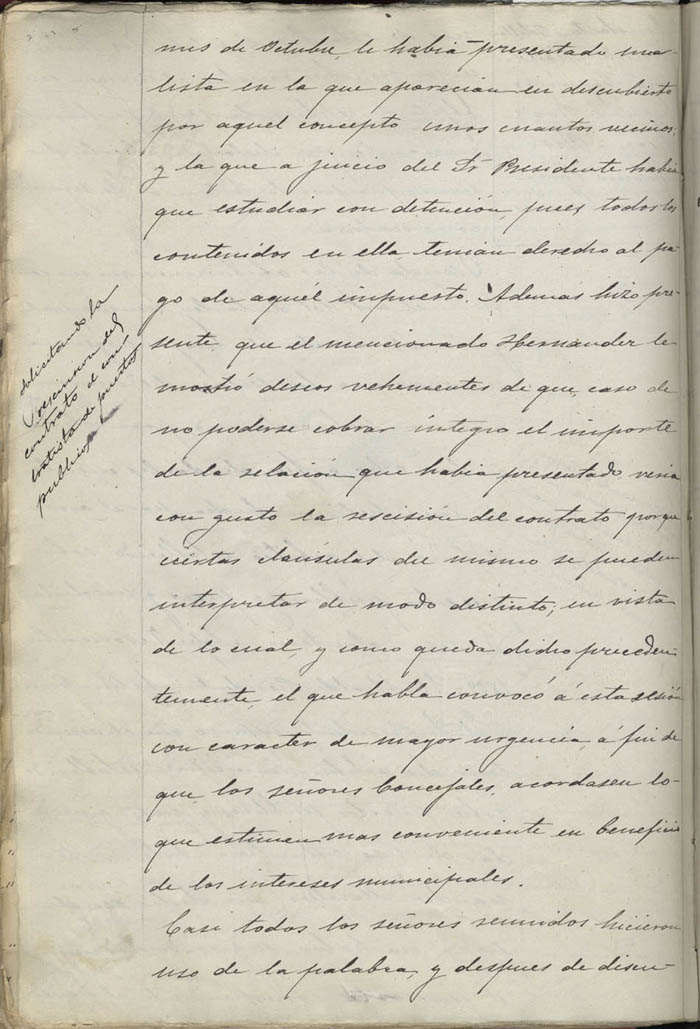 mes de Octubre, le habia presentado una
lista en la que aparecian en descubierto
por aquel concepto unos cuantos vecinos,
y la que a juicio del Sr Presidente habia
que estudiar con detención, pues todos los
contenidos en ella tenian derecho al pa-
go de aquél impuesto. Ademas hizo pre-
sente, que el mencionado Hernandez le
mostró deseos vehementes de que, caso de
no poderse cobrar integro el importe
de la relación que habia presentado, veria
con gusto la rescisión del contrato porque
ciertas claúsulas del mismo se pueden
interpretar de modo distinto; en vista
de lo cual, y como queda dicho preceden-
temente, el que habla convocó á esta sesión
con caracter de mayor urgencia, á fin de
que los señores Concejales, acordasen lo
que estimen mas conveniente en beneficio
de los intereses municipales.
Casi todos los señores reunidos hicieron
uso de la palabra, y despues de discu-
solicitando la
rescision del
contrato el con
tratista de puestos
publicos